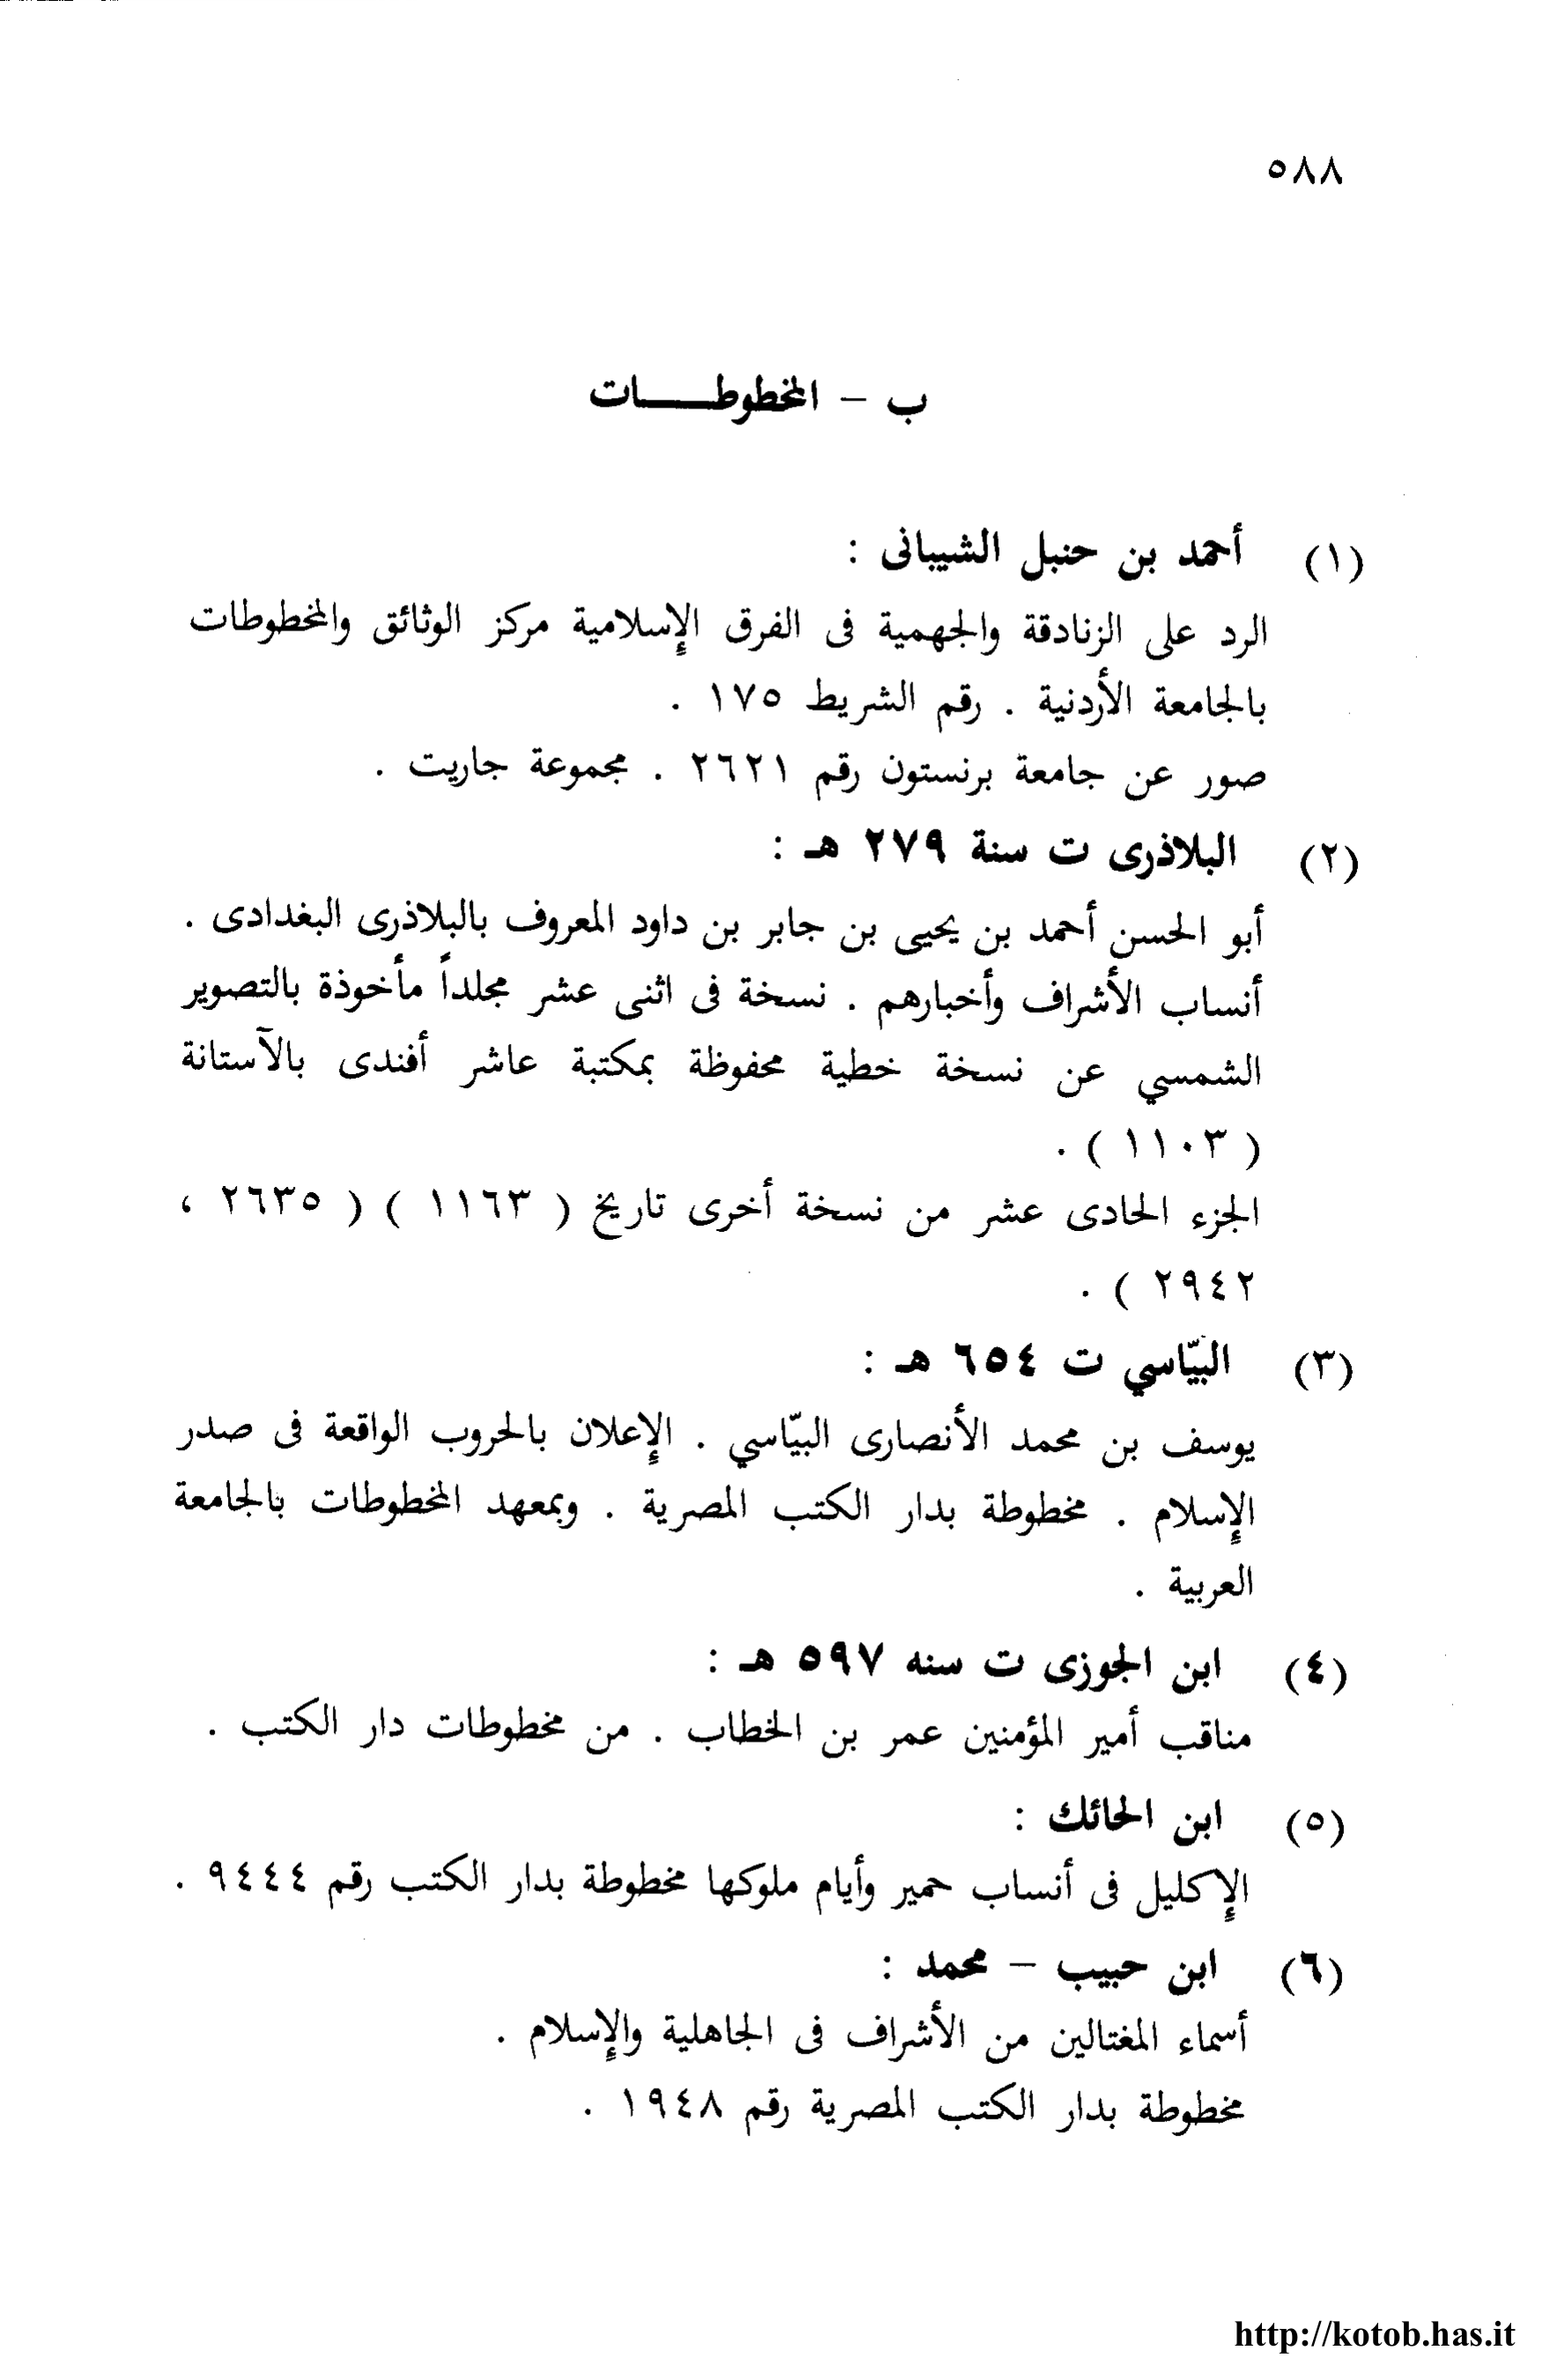 ٥٨٨
ب – المخطوطـــات
(١) أحمد بن حنبل الشيبانى :
الرد على الزنادقة والجهمية فى الفرق الإسلامية مركز الوثائق والمخطوطات
بالجامعة الأردنية . رقم الشريط ١٧٥ .
صور عن جامعة برنستون رقم ٢٦٢١ . مجموعة جاريت .
(٢) البلاذرى ت سنة ٢٧٩ هـ :
أبو الحسن أحمد بن يحيى بن جابر بن داود المعروف بالبلاذرى البغدادى .
أنساب الأشراف وأخبارهم . نسخة فى اثنى عشر مجلداً مأخوذة بالتصوير
الشمسي عن نسخة خطية محفوظة بمكتبة عاشر أفندى بالآستانة
( ١١٠٣ ) .
الجزء الحادى عشر من نسخة أخرى تاريخ ( ١١٦٣ ) ( ٢٦٣٥ ،
٢٩٤٢ ) .
(٣) البيّاسي ت ٦٥٤ هـ :
يوسف بن محمد الأنصارى البيّاسي . الإعلان بالحروب الواقعة فى صدر
الإسلام . مخطوطة بدار الكتب المصرية . وبمعهد المخطوطات بالجامعة
العربية .
(٤) ابن الجوزى ت سنه ٥٩٧ هـ :
مناقب أمير المؤمنين عمر بن الخطاب . من مخطوطات دار الكتب .
(٥) ابن الحائك :
الإكليل فى أنساب حمير وأيام ملوكها مخطوطة بدار الكتب رقم ٩٤٤٤ .
(٦) ابن حبيب – محمد :
أسماء المغتالين من الأشراف فى الجاهلية والإسلام .
مخطوطة بدار الكتب المصرية رقم ١٩٤٨ .
http://kotob.has.it